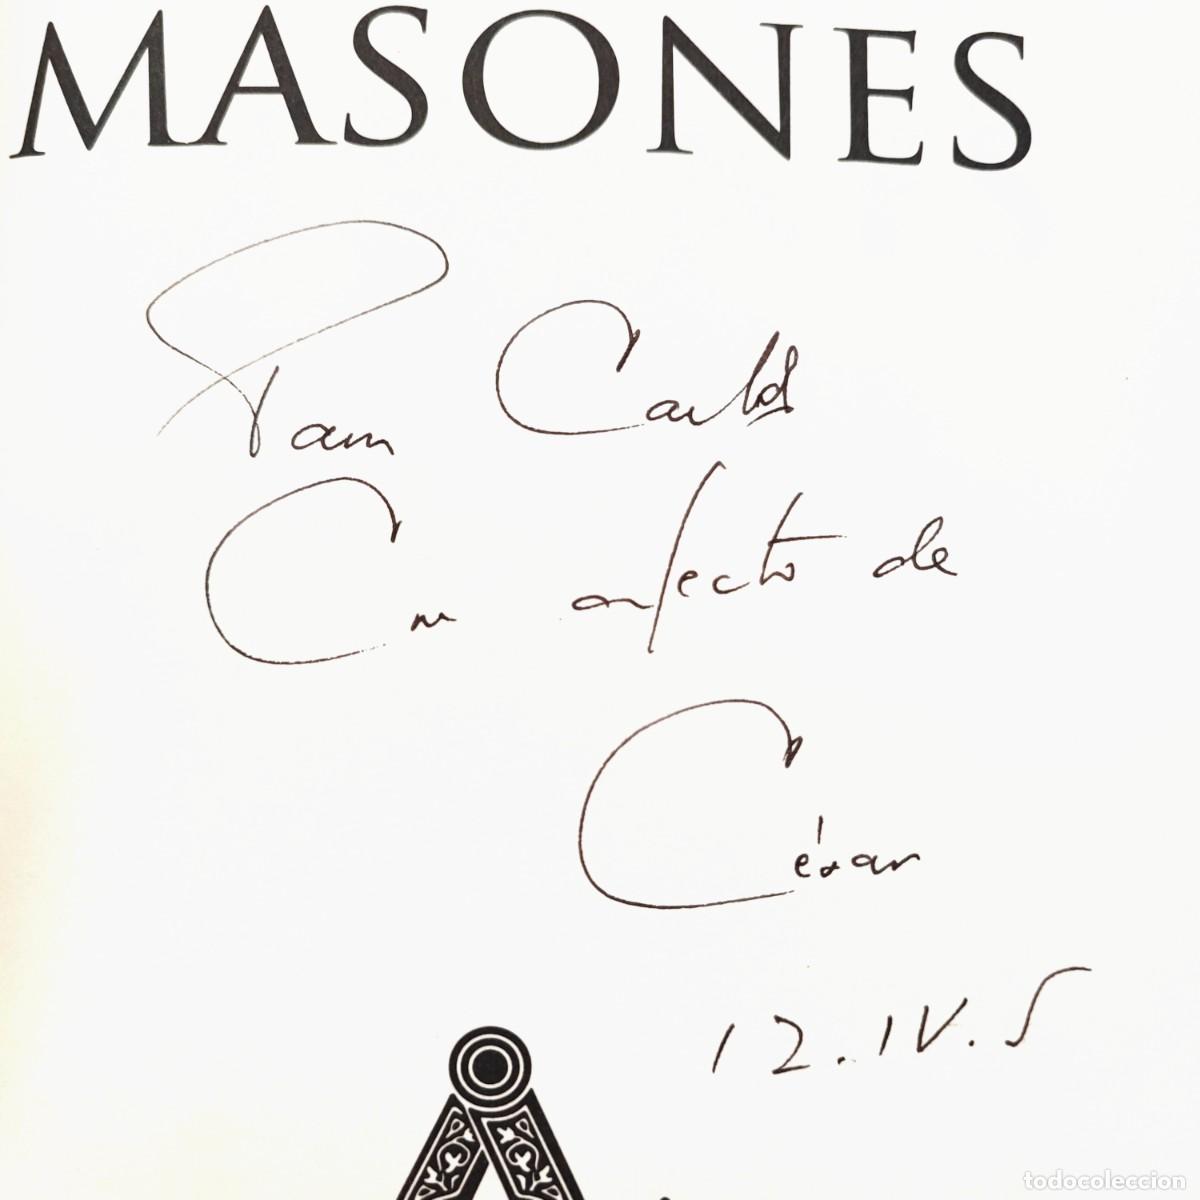 MASONES
Para Carlos
Con afecto de
César
12.IV.5
todocoleccion